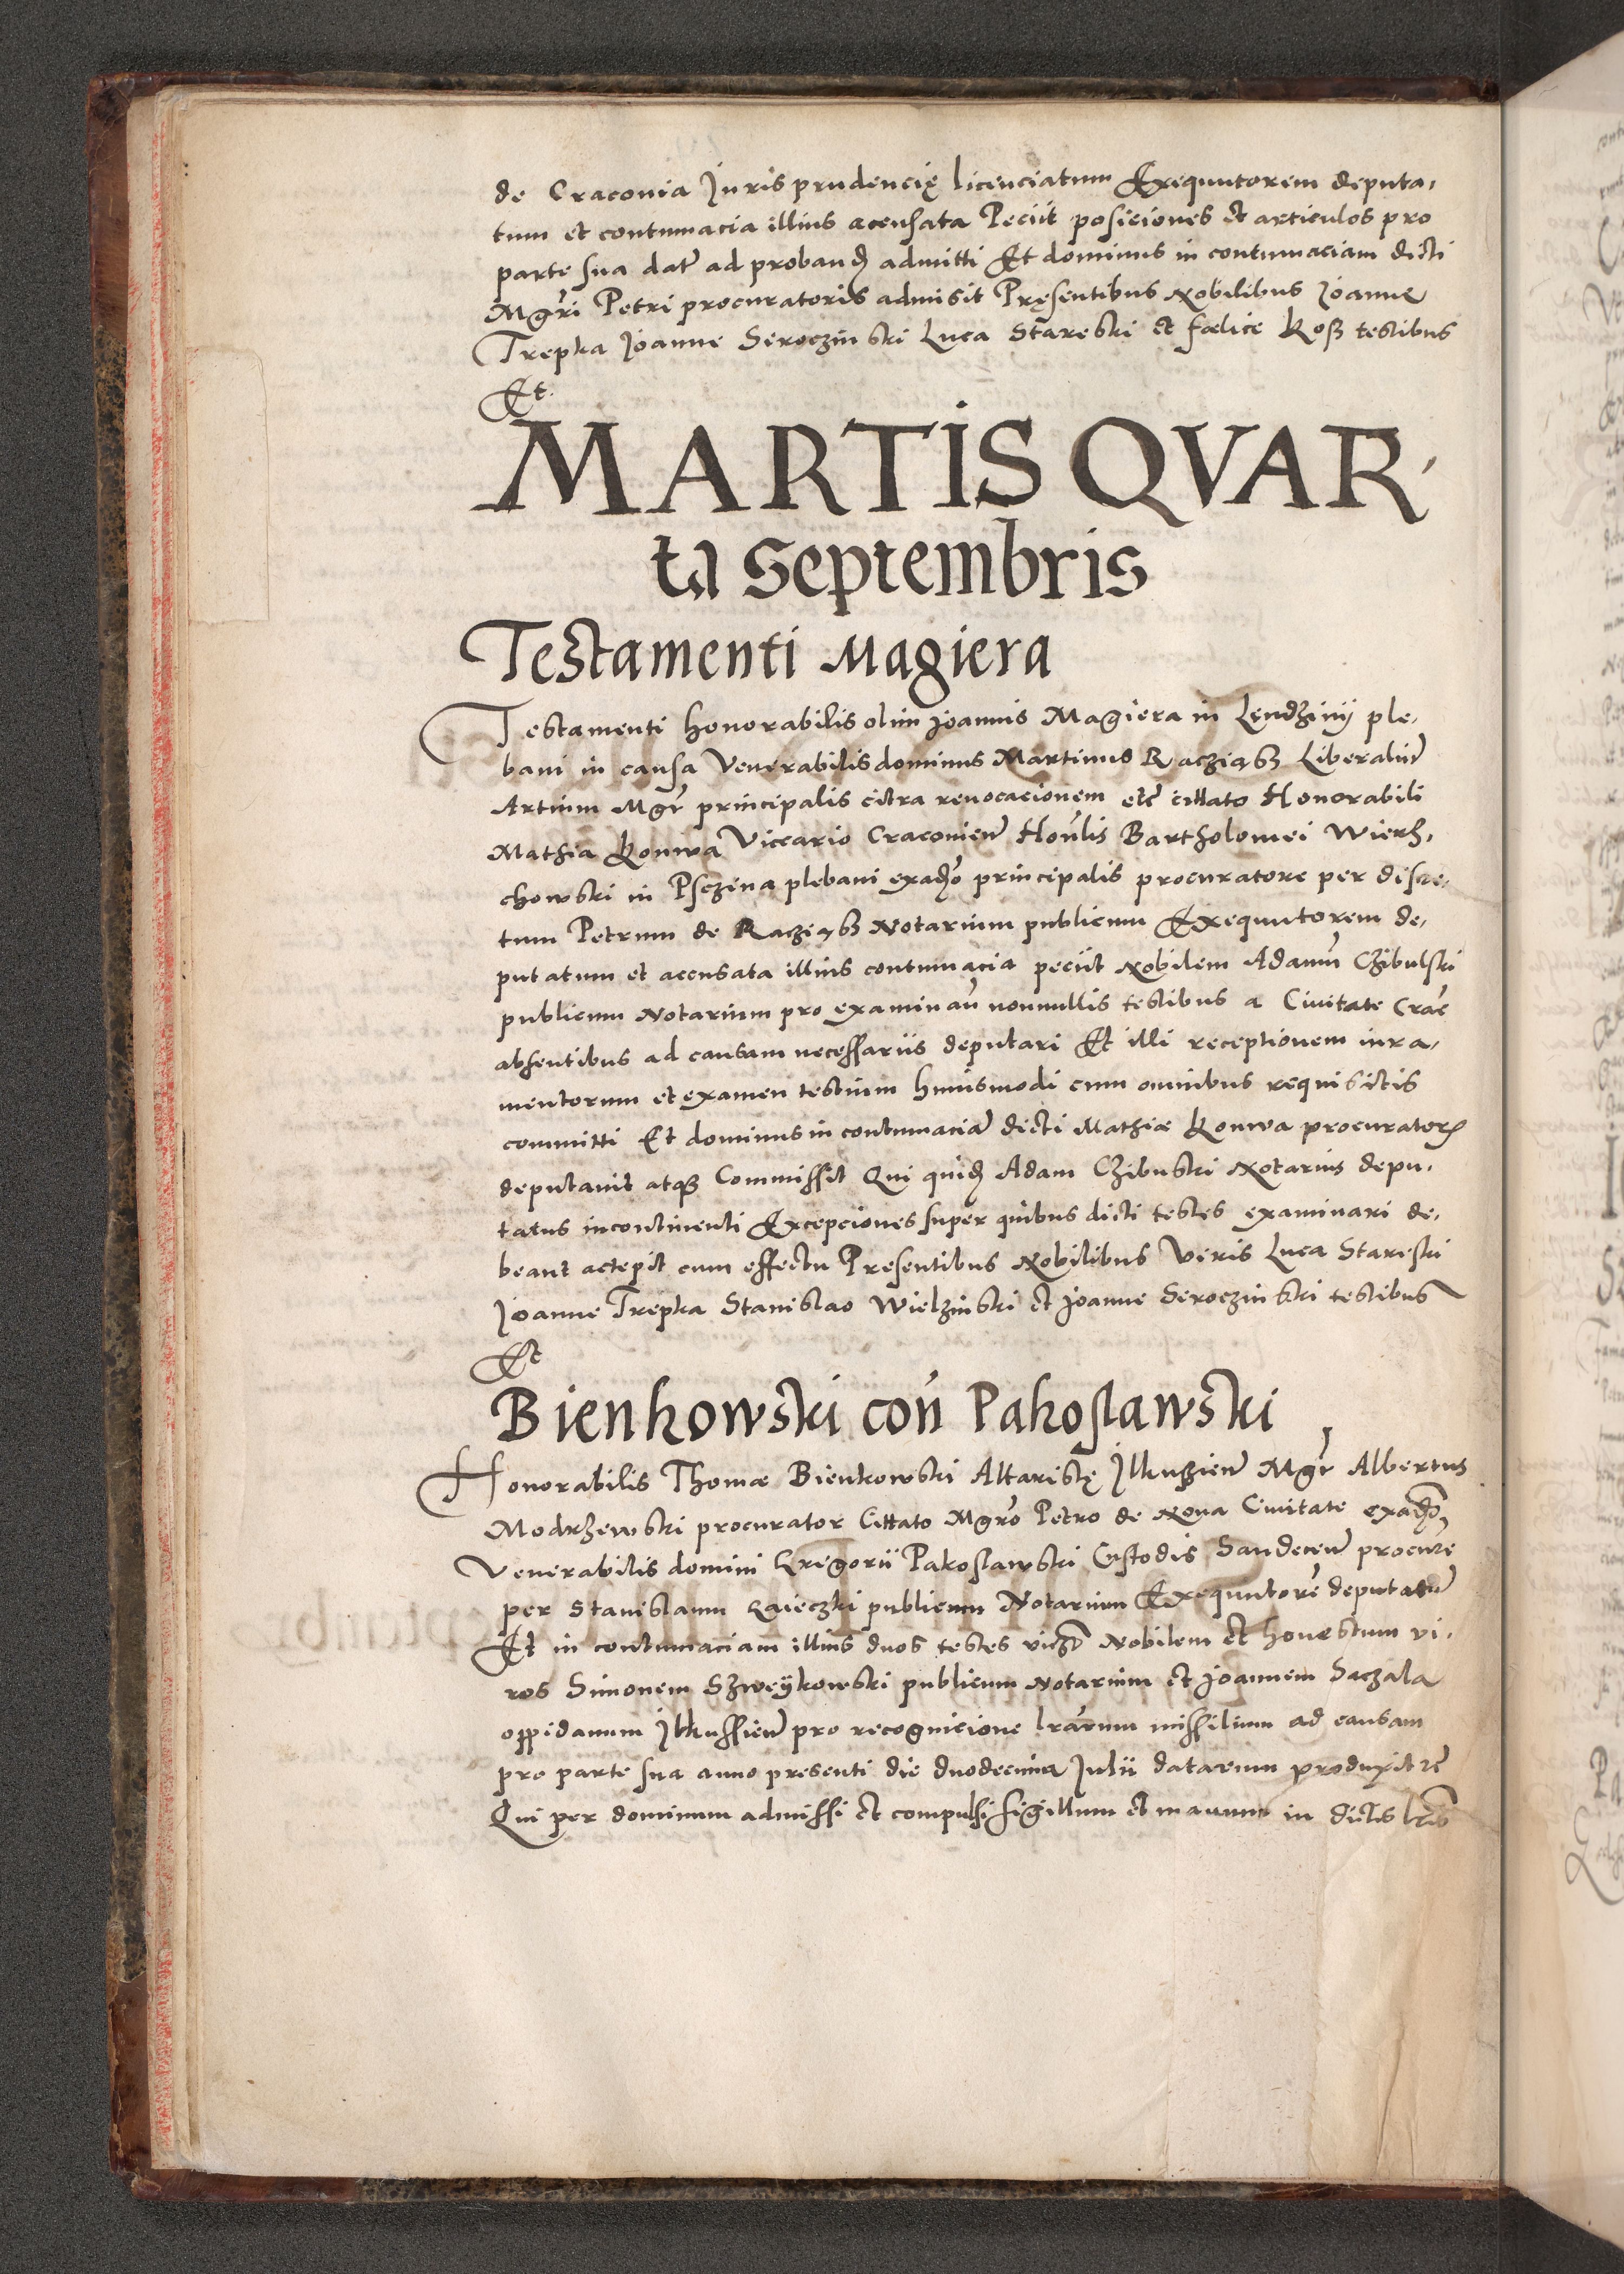 de Craconia Jurisprudencię licenciatum Exequutorem deputa,
tum et contumacia illius acensata Peciit posiciones et articulos pro
parte sua dat̃ ad proband̨ admitti Et dominus in contumaciam dicti
Mgr̃i Petri procuratoris admisit Pręsentibus Nobilibus Joanne
Trepka Joanne Seroczinski Luca Stareski et fœlice Koß testibus
Et
MARTIS QVAR,
ta Septembris
Testamenti Magiera
Testamenti honorabilis olim Joannis Magiera in Lendzinÿ ple,
bani in causa Venerabilis dominus Martinus Racziąß Liberaliu͂
Artium Mgr̃ principalis citra revocacionem etc̃ cittato Honorabili
Mathia Konwa Viccario Craconien̄ Hon̄lis Bartholomei Wierz,
chowski in Psczina plebani exad̨o principalis procuratore per discre,
tum Petrum de Racziąß Notarium publicum Exequutorem de,
putatum et acensata illius contumacia peciit Nobilem Adamu͂ Czibulski
publicum Notarium pro examinan̄ nonnullis testibus a Civitate Crac̄
absentibus ad causam necessariis deputari Et illi receptionem iura,
mentorum et examen testium huiusmodi cum omnibus requisitis
committi Et dominus in contumacia͂ dicti Mathiæ Konwa procuratorꝭ
deputavit atqꝫ Commissit Qui quid̨ Adam Czibuski Notarius depu,
tatus incontinenti Excepciones super quibus dicti testes examinari de,
beant actepit cum effectu Presentibus Nobilibus Viris Luca Stareski
Joanne Trepka Stanislao Wielzinski et Joanne Seroczinski testibus
Et
Bienkowski con̄ Pakoslawski
Honorabilis Thomæ Bienkowski Altaristę Jlkußien̄ Mgr̃ Albertus
Modrzewski procurator Cittato Mgr̃o Petro de Nova Civitate exad̨o
Venerabilis domini Gregorii Pakoslawski Custodis Sandecen̄ procure
per Stanislaum Gaieczki publicum Notarium Exequutore͂ deputatu͂
Et in contumaciam illius duos testes vicz̃ Nobilem et honestum vi,
ros Simonem Szweÿkowski publicum Notarium et Joannem Saczala
oppidanum Jlkussien̄ pro recognicione lr̃arum missilium ad causam
pro parte sua anno presenti die duodecima Julii datarum produxit ec̃
Qui per dominum admissi et compulsi sigillum et manum in dictis lr̃is